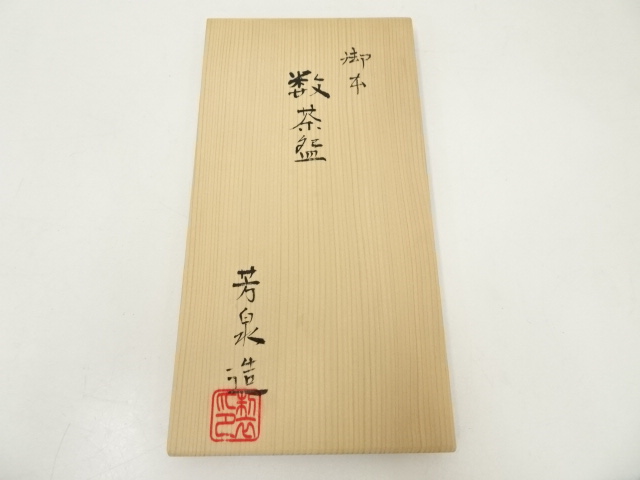 御本
数茶盌
芳泉造